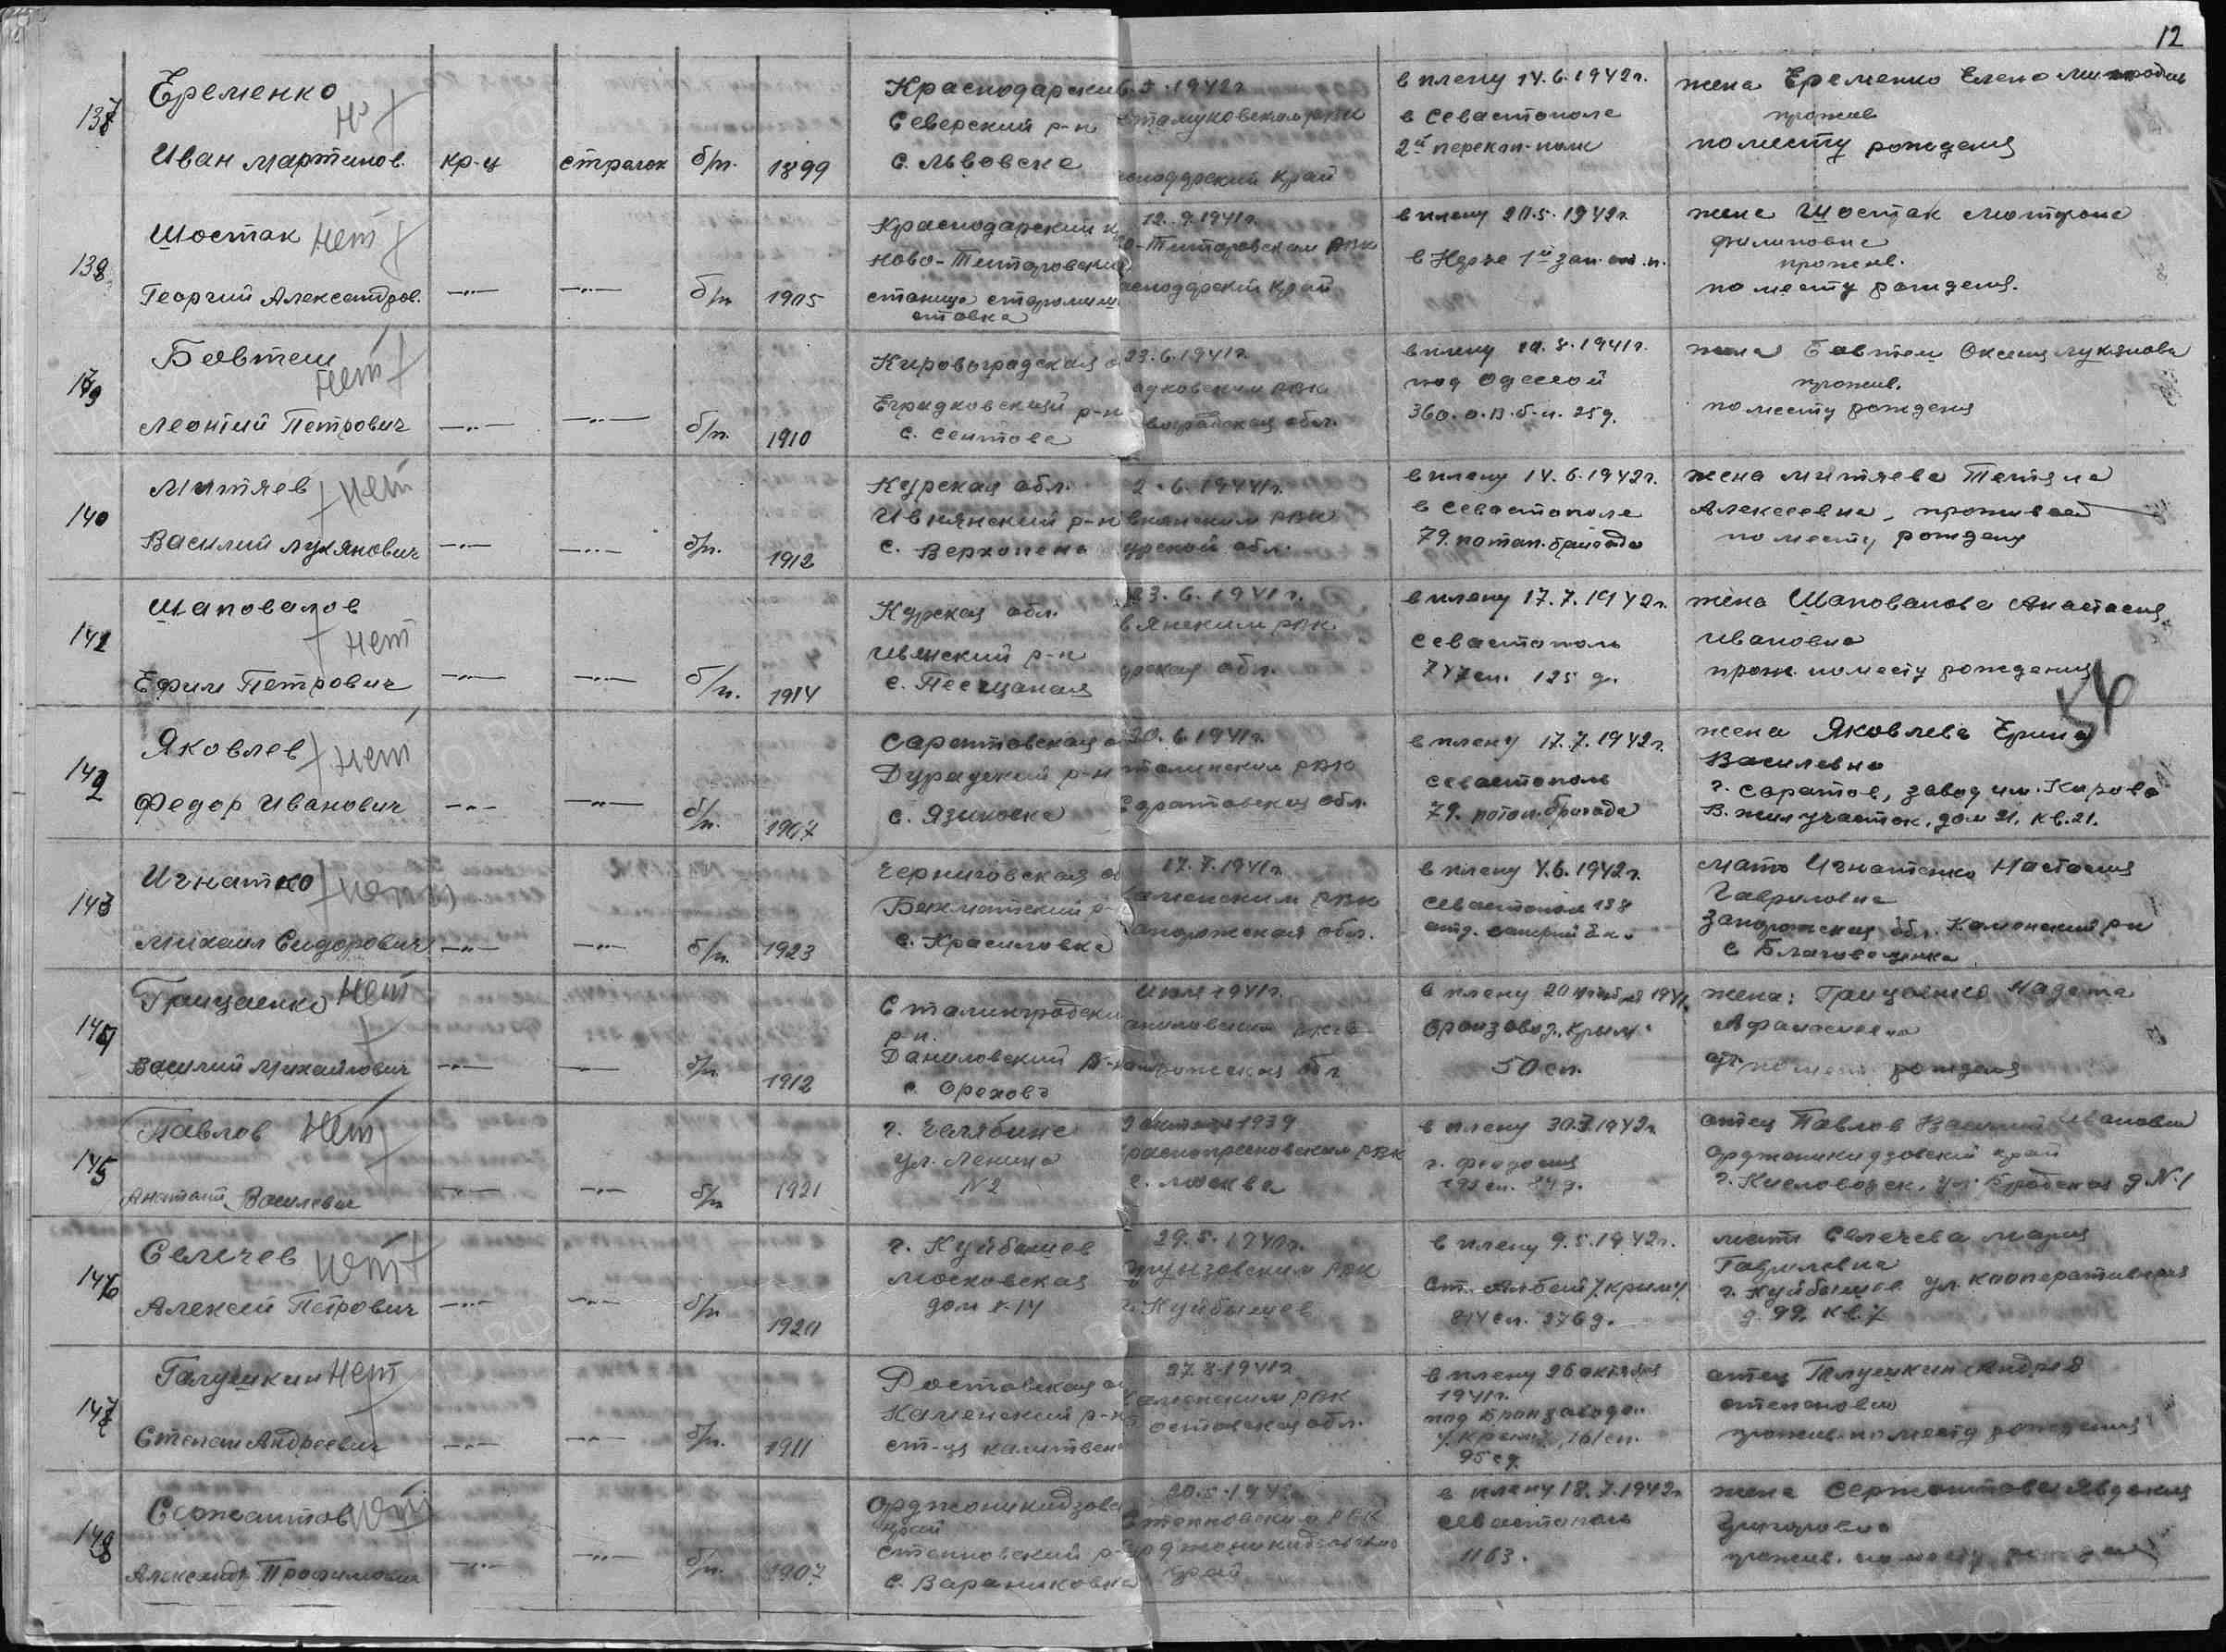 12
137
Еременко
Нет
Иван Мартинов.
кр-ц
стрелок
б/п.
1899
Краснодарский
Северский р-н
с. Львовске
5.1942г
РВК
Краснодарский край
в плену 14.6.1942г.
в Севастополе
2й перекоп. полк
жена Еременко Елена
прожив
по месту рождения
138
Шостак
нет
Георгий Александров.
-"-
-"-
б/п
1905
Краснодарский к
Ново-Титаровский
станица старомыш
стовка
12.9.1941г.
о-Титоровским РВК
аснодарский край
в плену 20.5.1942г
в Керче 1й зап. п.
жена Шостак Мотрона
Филиповна
прожив.
по месту рождения.
139
Бовтеш
нет
Леонтий Петрович
-"-
-"-
б/п.
1910
Кировоградская о
р-н
с. Сентове
23.6.1941г.
адковским РВК
воградская обл.
в плену 10.8.1941г.
под Одессой
360. о.в.б-н. 25д.
жена Бовтеш Оксения Лукянова
прожив.
по месту рождения
140
Митяев
нет
Василий Лукянович
-"-
-"-
б/п.
1912
Курская обл.
Ивнянский р-н
с. Верхопене
2.6.1941г.
внянским РВК
урской обл.
в плену 14.6.1942г.
в Севастополе
79. бригада
жена Митяева Татяна
Алексеевна, проживает
по месту рождения
141
Шаповалов
нет
Ефим Петрович
-"-
-"-
б/п.
1914
Курская обл.
Ивянский р-н
с. Песщаная
23.6.1941г.
вянским РВК
урская обл.
в плену 17.7.1942г.
Севастополь
747сп. 125 д.
жена Шаповалова Анастасия
Ивановна
прож. по месту рождения
142
Яковлев
нет
Федор Иванович
-"-
-"-
б/п.
1907
Саратовская о
р-н
с. Языковка
20.6.1941г.
сталинским РВК
Саратовская обл.
в плену 17.7.1942г.
Севастополь
79. бригада
жена Яковлева Ерина
Василевна
г. Саратов, завод им. Кирова
В. жил участок, дом 21, кв. 21.
143
Игнатко
нет
Михаил Сидорович
-"-
-"-
б/п.
1923
Черниговская об
Бахматский р-
с. Красиловка
17.7.1941г.
аменским РВК
апорожская обл.
в плену 4.6.1942г.
Севастополь 138
отд. саперный б-н
мать Игнатенко Настасия
Гавриловна
Запорожская обл. Каменский рн
с Благовещенка
144
Грищаенко
нет
Василий Михайлович
-"-
-"-
б/п.
1912
Сталинградский
р-н.
Даниловский р-н
с. Орехова
июля 1941г.
обл
в плену 20 1941.
Крым.
50 сп.
жена: Грищаенко
Афанасиевна
по месту рождения
145
Павлов
нет
Анатолий Василевич
-"-
-"-
б/п
1921
г. Челябинс
ул. Ленина
N2
2 октября 1939
раснопресновским РВК
г. москва
в плену 30.3.1942г
г. Феодосия
сп. 84 д.
отец Павлов Василий Иванович
Орджоникидзовский край
г. Кисловодск, ул. д N.1
146
Селичев
нет
Алексей Петрович
-"-
-"-
б/п
1920
г. Куйбышев
Московская
дом №14
29.5.1941г.
РВК
г. Куйбышев
в плену 9.5.1942г.
ст. /Крим/
814 сп. 276 д.
мать Селечева Мария
Гавриловна
г. Куйбышев ул. Кооперативная
д. 99, кв. 7
147
Галушкин
нет
Степан Андреевич
-"-
-"-
б/п.
1911
Ростовская о
Каменский р-н
ст-ця калитвен
27.8.1941г
Каменским РВК
остовская обл.
в плену 26 октября
1941г.
под
/Крим/, 161 сп.
95 сд.
отец Галушкин Андрей
степанович
прожив. по месту рождения
148
Сержантов
нет
Александр Трофимович
-"-
-"-
б/п.
1907
Орджоникидзовс
край
степновский р-
с. Варениковка
20.5.1942
Степновским РВК
рджоникидзовский
край
в плену 18.7.1942г
Севастополь
1163.
жена Сержантова Явдокия
Григоровна
прожив. по месту рождения